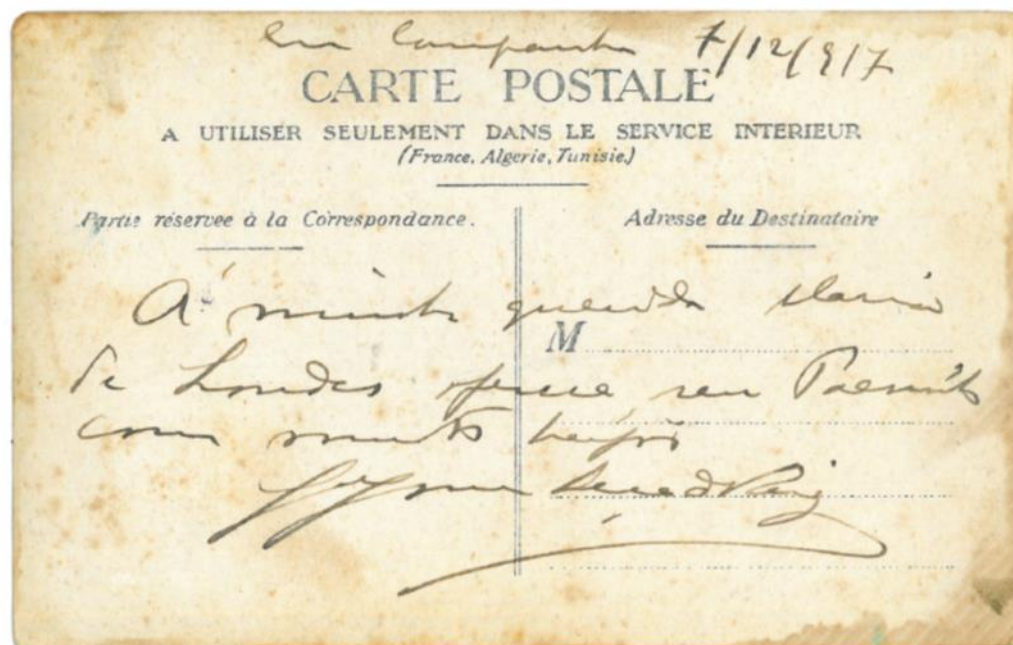 Em Campanha 7/12/917
CARTE POSTALE
A UTILISER SEULEMENT DANS LE SERVICE INTERIEUR
(France, Algerie, Tunisie.)
Partie réservée à la Correspondance.
Adresse du Destinataire
M
A' minha querida Maria
de Lourdes oferece seu Paesinho
com muitos beijos